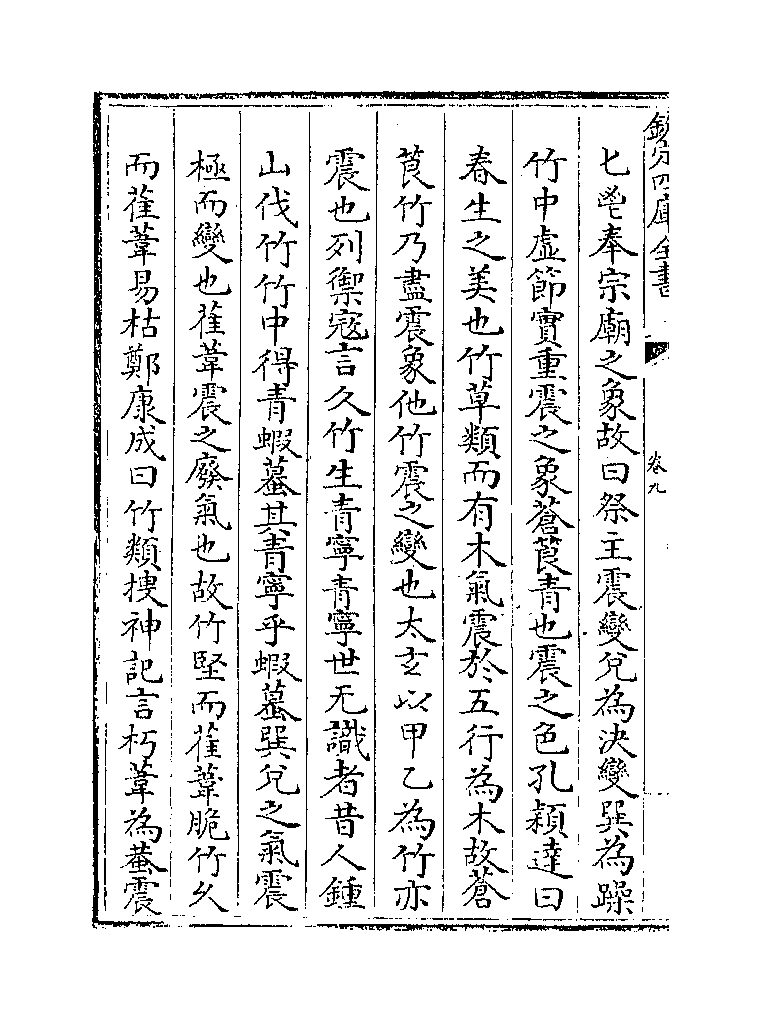 欽定四庫全書
卷九
匕鬯奉宗廟之象故曰祭主震變兌為決變巽為躁
竹中虛節實重震之象蒼筤青也震之色孔穎達曰
春生之美也竹草類而有木氣震於五行為木故蒼
筤竹乃盡震象他竹震之變也太玄以甲乙為竹亦
震也列禦寇言久竹生青寧青寧世无識者昔人鍾
山伐竹竹中得青蝦蟇其青寧乎蝦蟇巽兌之氣震
極而變也萑葦震之廢氣也故竹堅而萑葦脆竹久
而萑葦易枯鄭康成曰竹類捜神記言朽葦為蛬震